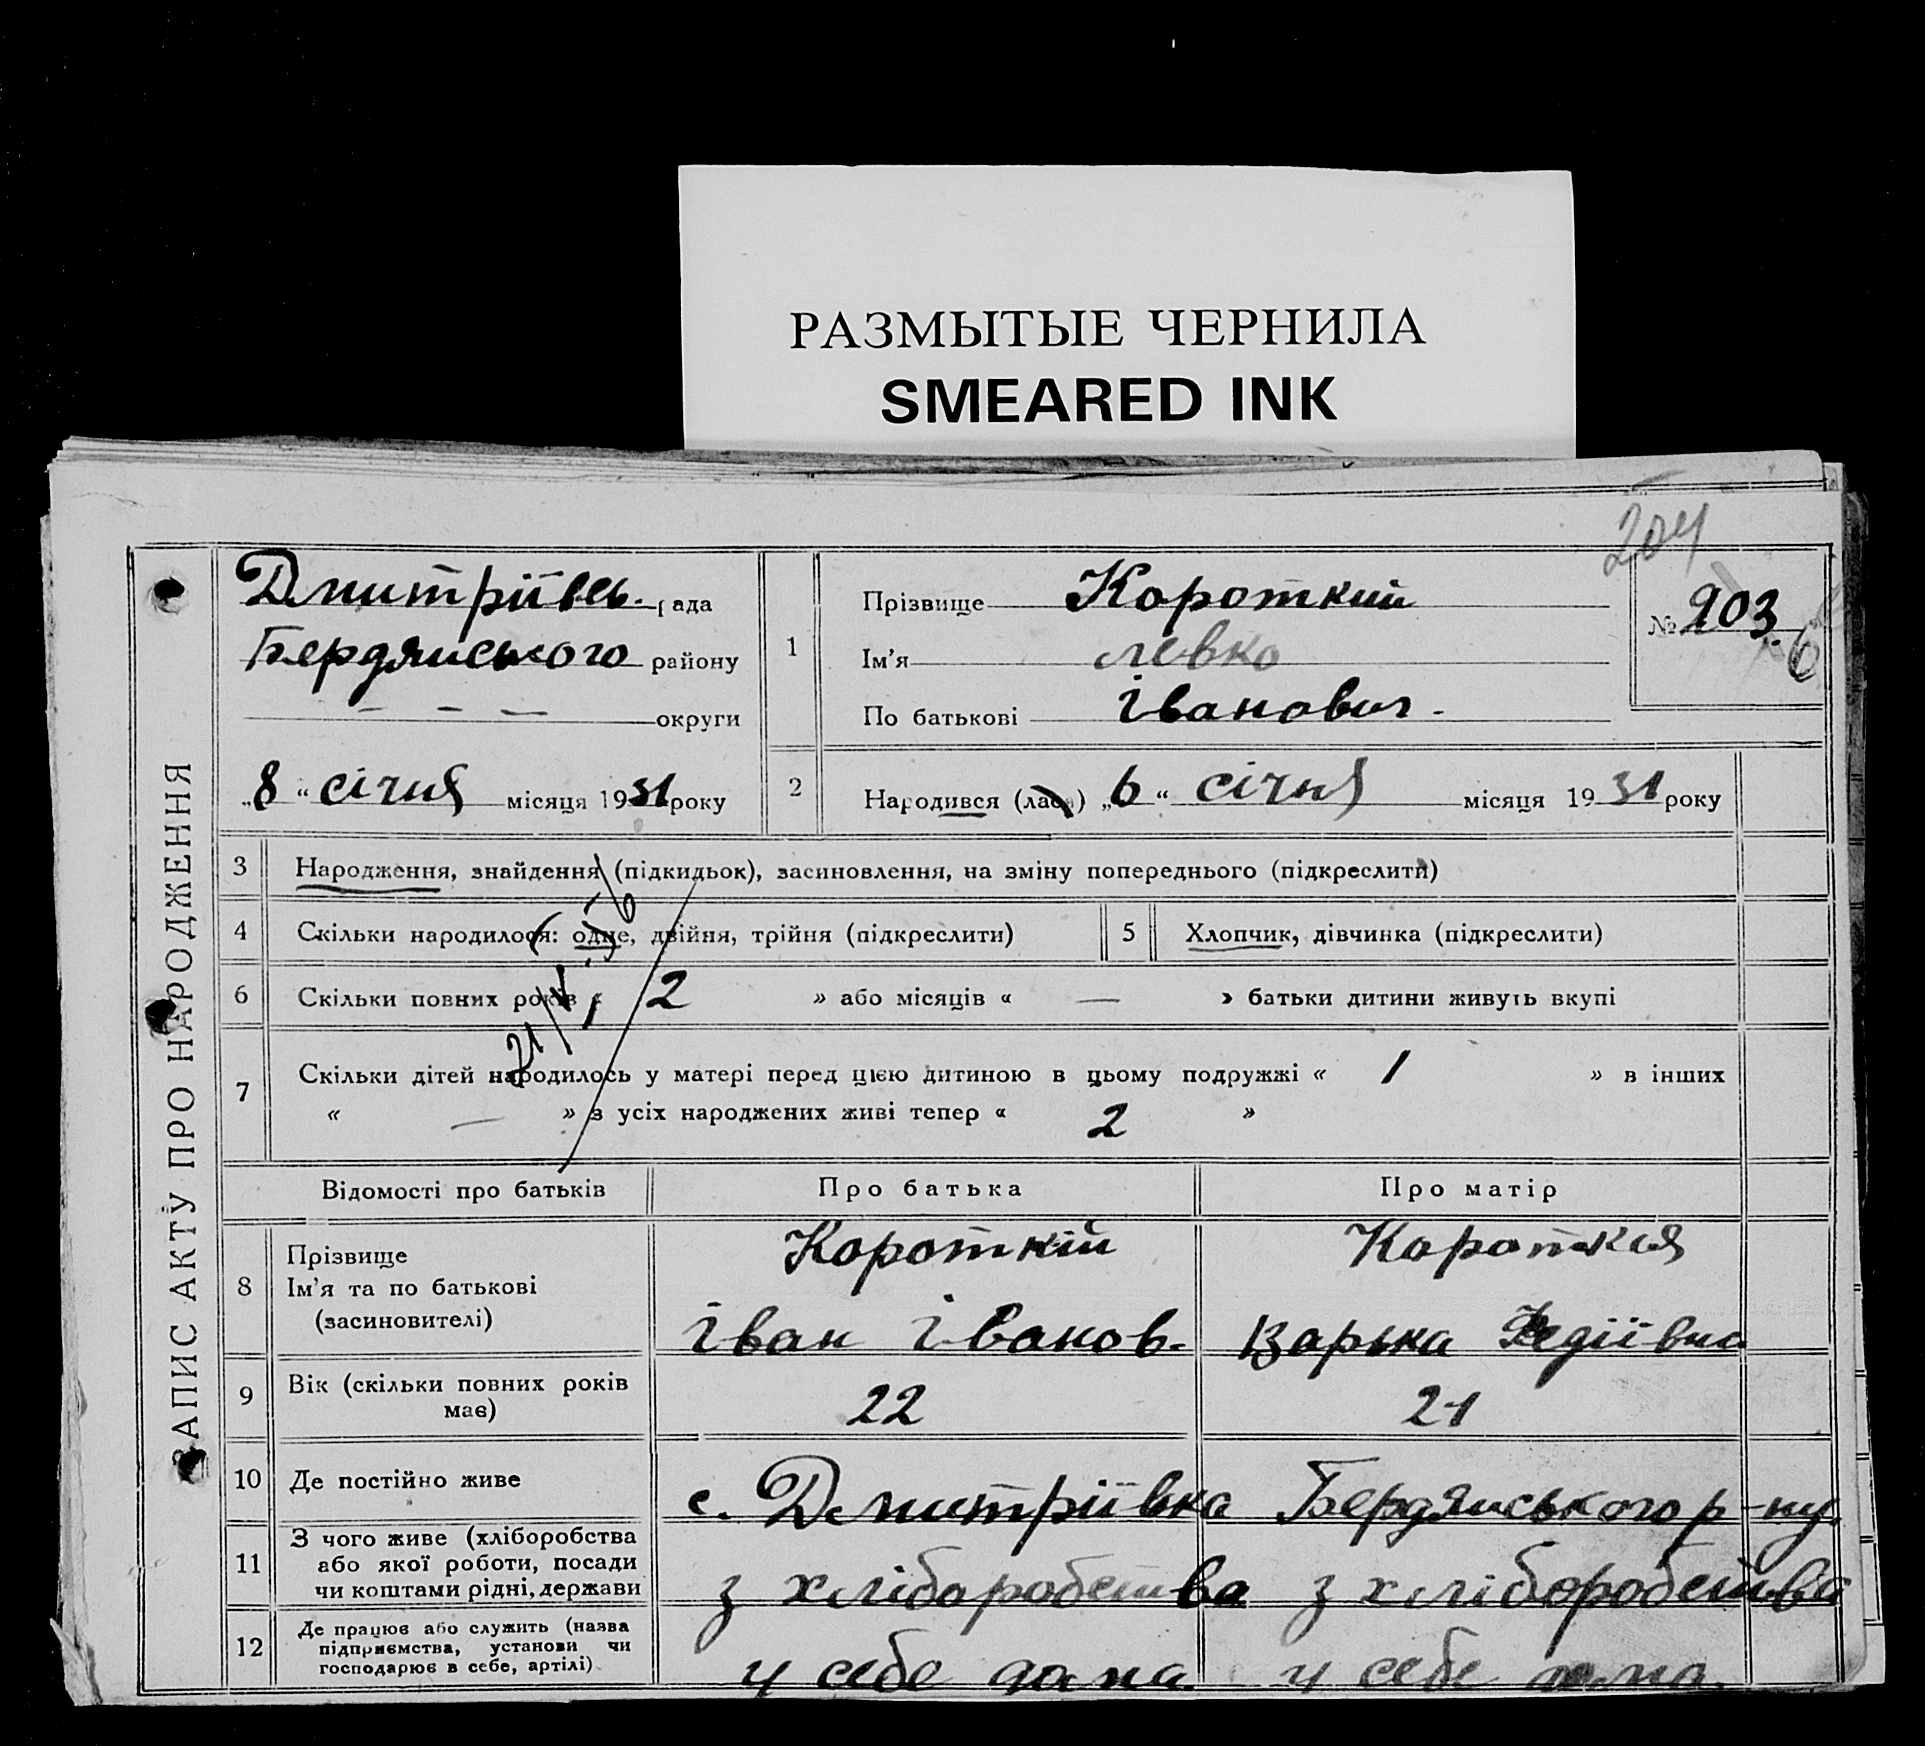 РАЗМЫТЫЕ ЧЕРНИЛА
SMEARED INK
204
ЗАПИС АКТУ ПРО НАРОДЖЕННЯ
Дмитріївсь. рада
Бердянського району
— — — округи
„8“ січня місяця 1931 року
1
Прізвище Короткий
Ім'я левко
По батькові Іванович.
№ 203
6
2
Народився (лася) „6“ січня місяця 1931 року
3 Народження, знайдення (підкидьок), засиновлення, на зміну попереднього (підкреслити)
4 Скільки народилося: одне, двійня, трійня (підкреслити)
5 Хлопчик, дівчинка (підкреслити)
6 Скільки повних років « 2 » або місяців « — » батьки дитини живуть вкупі
7 Скільки дітей народилось у матері перед цією дитиною в цьому подружжі « 1 » в інших
« — » з усіх народжених живі тепер « 2 »
Відомості про батьків Про батька Про матір
8 Прізвище
Ім'я та по батькові
(засиновителі)
Короткій
Іван Іванов.
Короткия
Варька
9 Вік (скільки повних років
має)
22 21
10 Де постійно живе с. Дмитріївка Бердянського р-ну.
11 З чого живе (хліборобства
або якої роботи, посади
чи коштами рідні, держави
з хліборобства з хліборобства
12 Де працює або служить (назва
підприємства, установи чи
господарює в себе, артілі)
у себе дома. у себе дома.